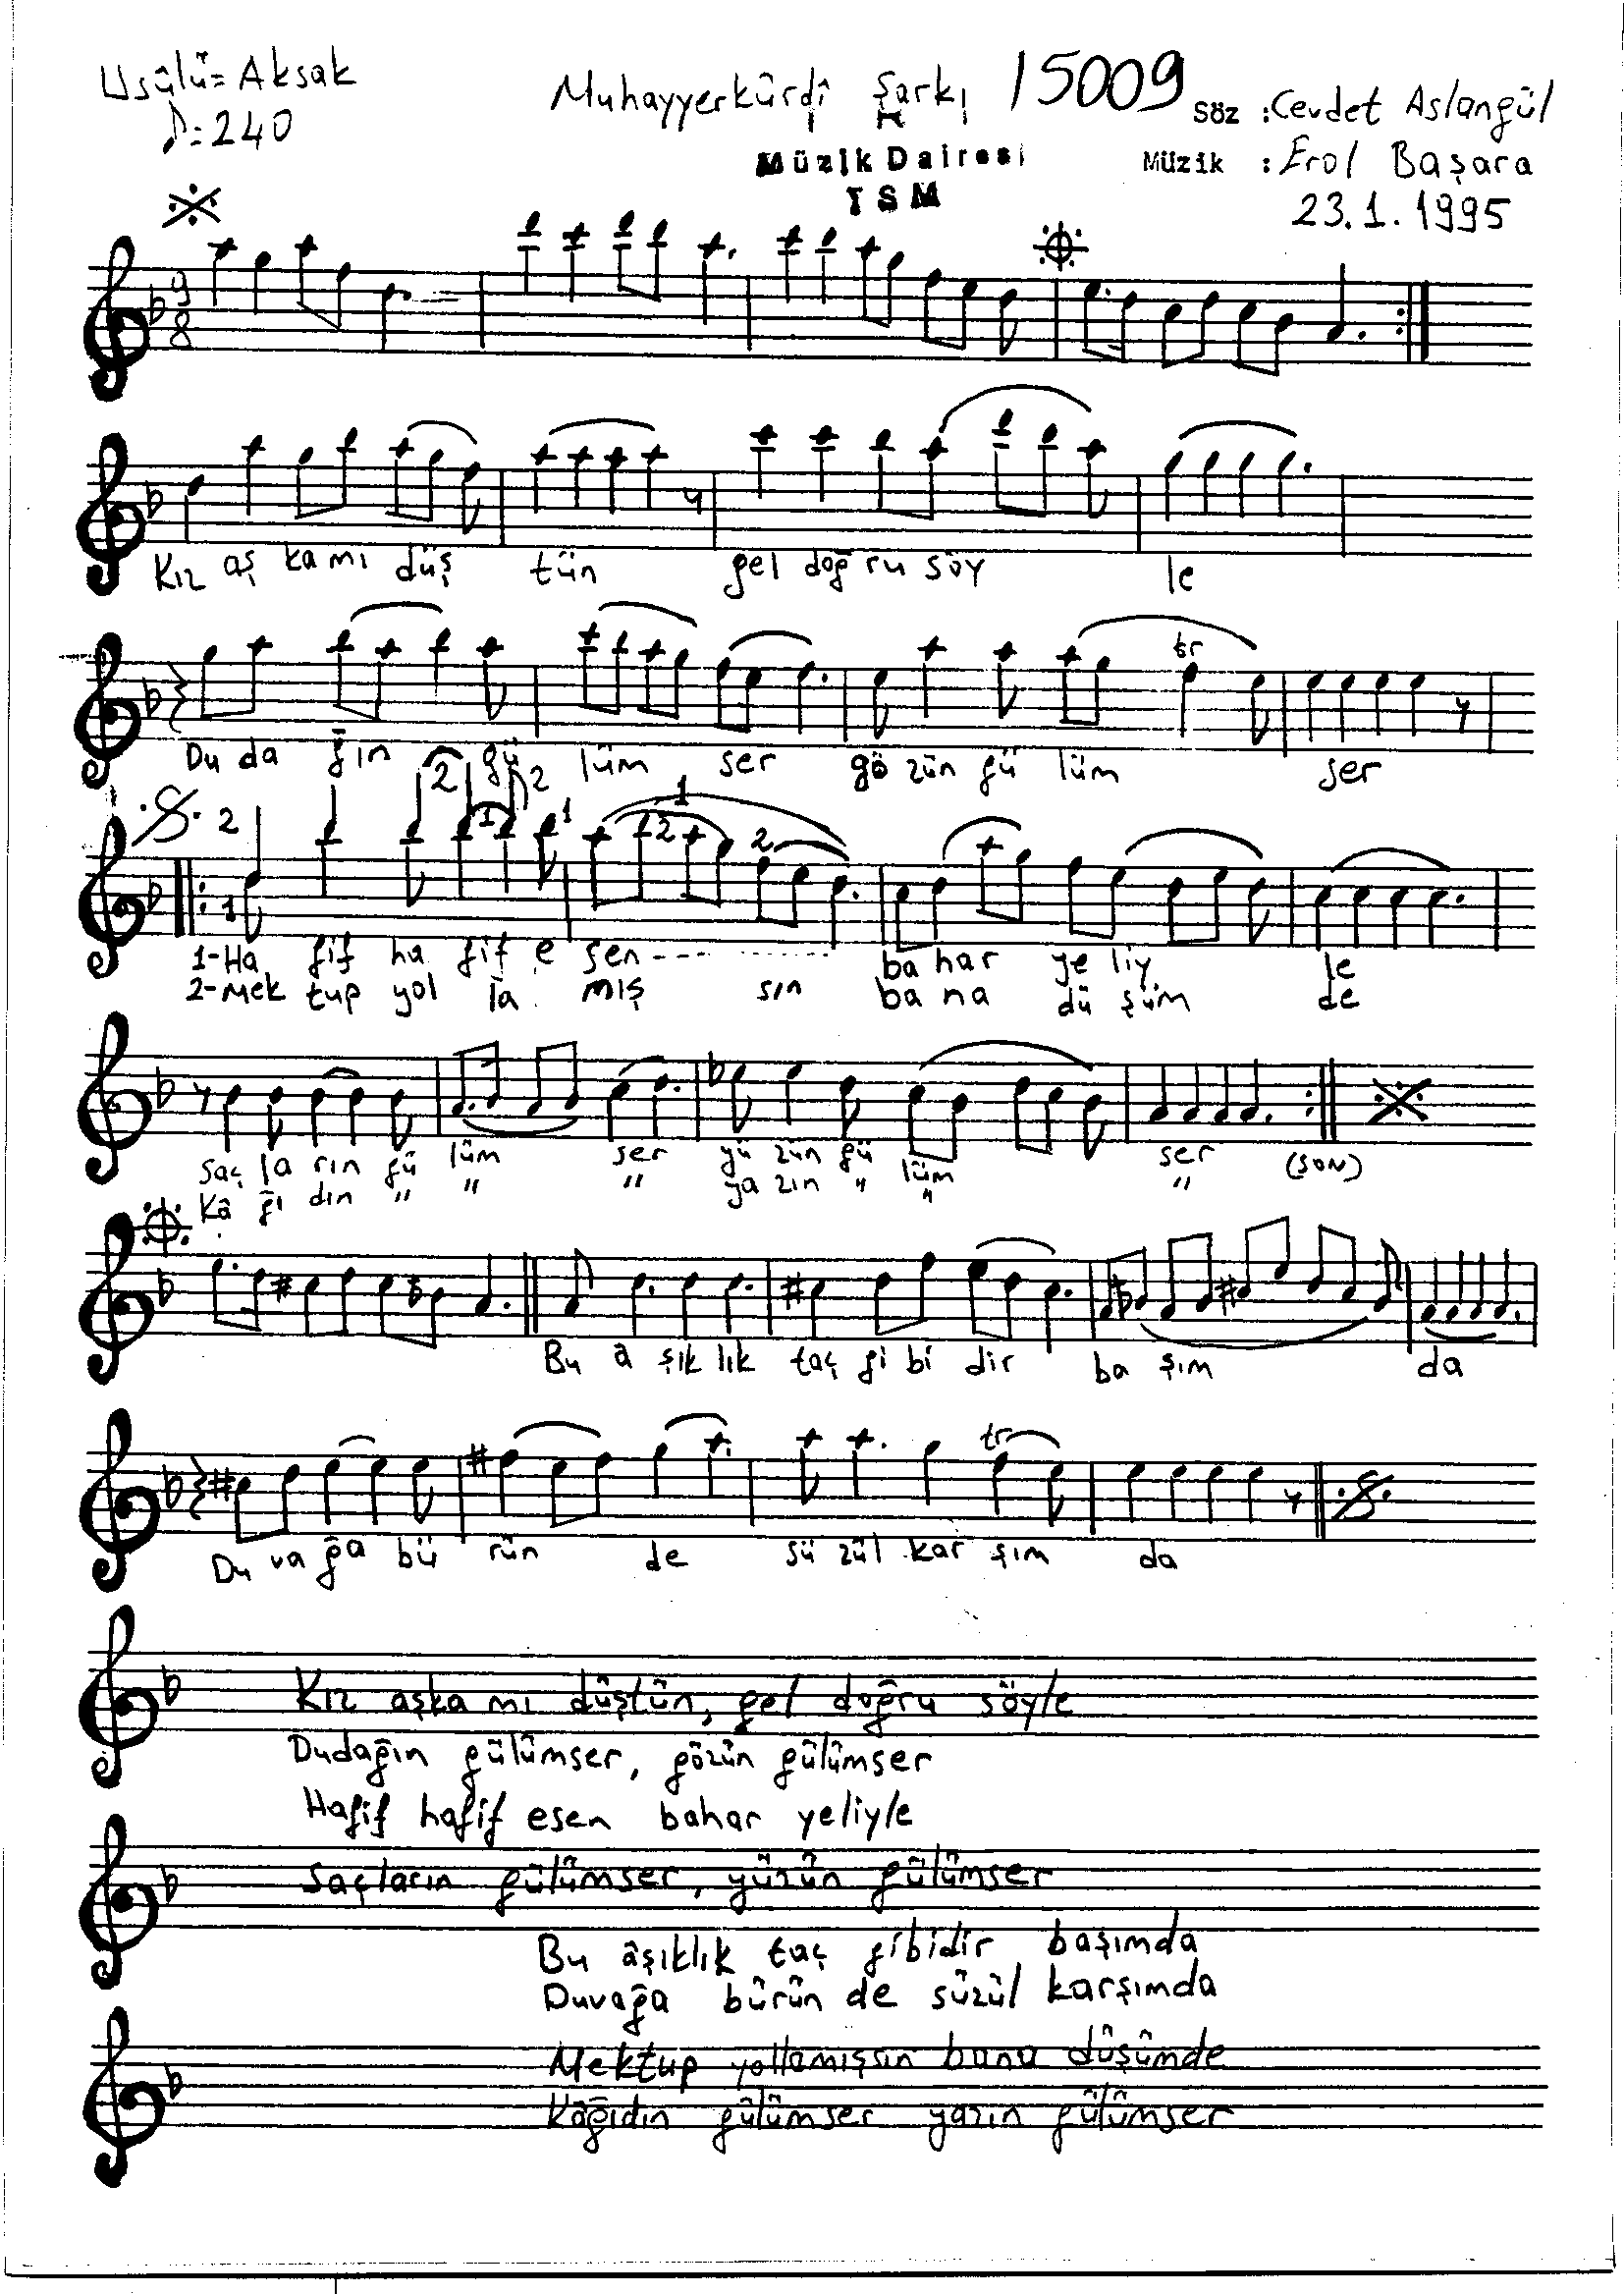 Usûlü=Aksak
♪=240
Muhayyerkürdî Şarkı 15009
Söz :Cevdet Aslangül
Müzik Dairesi
TSM
Müzik :Erol Başara
23.1.1995
9
8
Kız aş ka mı düş tün gel doğ ru söy le
tr
Du da ğın gü lüm ser gö zün gü lüm ser
2 2
2 1 1 1 2 2
1
1-Ha fif ha fif e sen---------- ba har ye liy le
2-Mek tup yol la mış sın ba na dü şüm de
Saç la rın gü lüm ser yü zün gü lüm ser (SON)
Kâ ğı dın " " " ya zın " " "
Bu â şık lık taç gi bi dir ba şım da
tr
Du va ğa bü rün de sü zül kar şım da
Kız aşka mı düştün, gel doğru söyle
Dudağın gülümser, gözün gülümser
Hafif hafif esen bahar yeliyle
Saçların gülümser, yüzün gülümser
Bu âşıklık taç gibidir başımda
Duvağa bürün de süzül karşımda
Mektup yollamışsın bana düşümde
Kâğıdın gülümser yazın gülümser